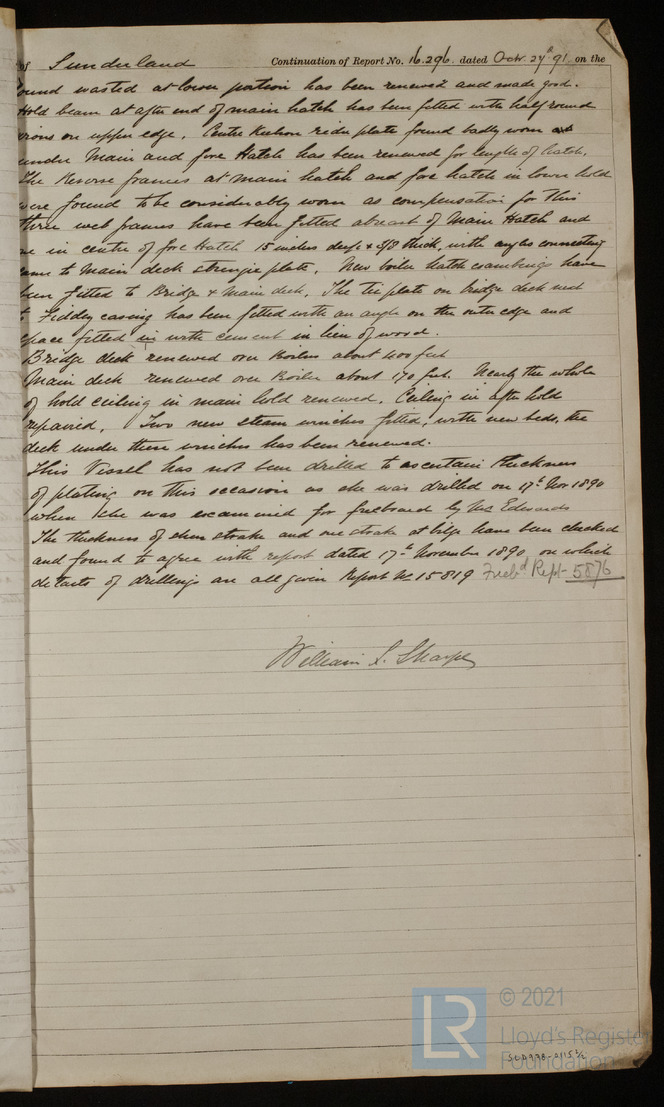 of Sunderland Continuation of Report No. 16.296. dated Octr. 27th 91 on the
ound wasted at lower portion has been renewed and made good.
Hold beam at after end of main hatch has been fitted with half round
irons on upper edge. Centre Keelson rider plate found badly worn
under Main and fore Hatch has been renewed for length of hatch.
The Reverse frames at main hatch and fore hatch in lower hold
were found to be considerably worn as compensation for this
three web frames have been fitted abreast of Main Hatch and
one in centre of fore Hatch 15 inches deep x 5/8 thick, with angles connecting
same to main deck stringer plate. New boiler hatch coambings have
been fitted to Bridge & Main deck. The tie plate on bridge deck next
to Fiddley casing has been fitted with an angle on the outer edge and
space fitted in with cement in lieu of wood.
Bridge deck renewed over Boilers about 400 feet
Main deck renewed over Boiler about 170 feet. Nearly the whole
of hold ceiling in main hold renewed. Ceiling in after hold
repaired. Two new steam winches fitted, with new beds, the
deck under these winches has been renewed.
This Vessel has not been drilled to ascertain thickness
of plating on this occasion as she was drilled on 17th Nov 1890
when she was examined for freeboard by Edwards
The thickness of sheer strake and one strake at bilge have been checked
and found to agree with report dated 17th November 1890 on which
details of drillings are all given Report No 15819 Freebd Rept- 5876
William S. Sharpe
LR © 2021
Lloyd's Register
Foundation